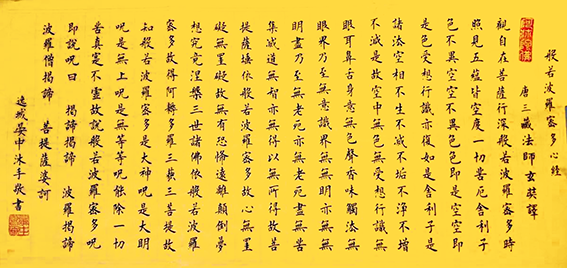 般若波羅密多心經
唐三藏法師玄奘譯
觀自在菩薩行深般若波羅密多時
照見五蘊皆空度一切苦厄舍利子
色不異空空不異色色即是空空即
是色受想行識亦復如是舍利子是
諸法空相不生不滅不垢不淨不增
不減是故空中無色無受想行識無
眼耳鼻舌身意無色聲香味觸法無
眼界乃至無意識界無無明亦無無
明盡乃至無老死亦無老死盡無苦
集滅道無智亦無得以無所得故菩
提薩埵依般若波羅密多故心無罣
礙無罣礙故無有恐怖遠離顛倒夢
想究竟涅槃三世諸佛依般若波羅
密多故得阿耨多羅三藐三菩提故
知般若波羅密多是大神呪是大明
呪是無上呪是無等等呪能除一切
苦真實不虛故說般若波羅密多呪
即說呪曰 揭諦揭諦 波羅揭諦
波羅僧揭諦 菩提薩婆訶
城晏中沐手敬書